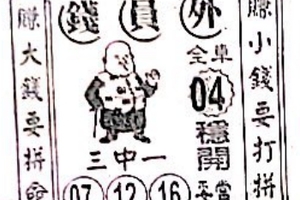 錢員外
賺小錢要打拼
賺大錢要拼命
全車
04
穩開
三中一
07 12 16